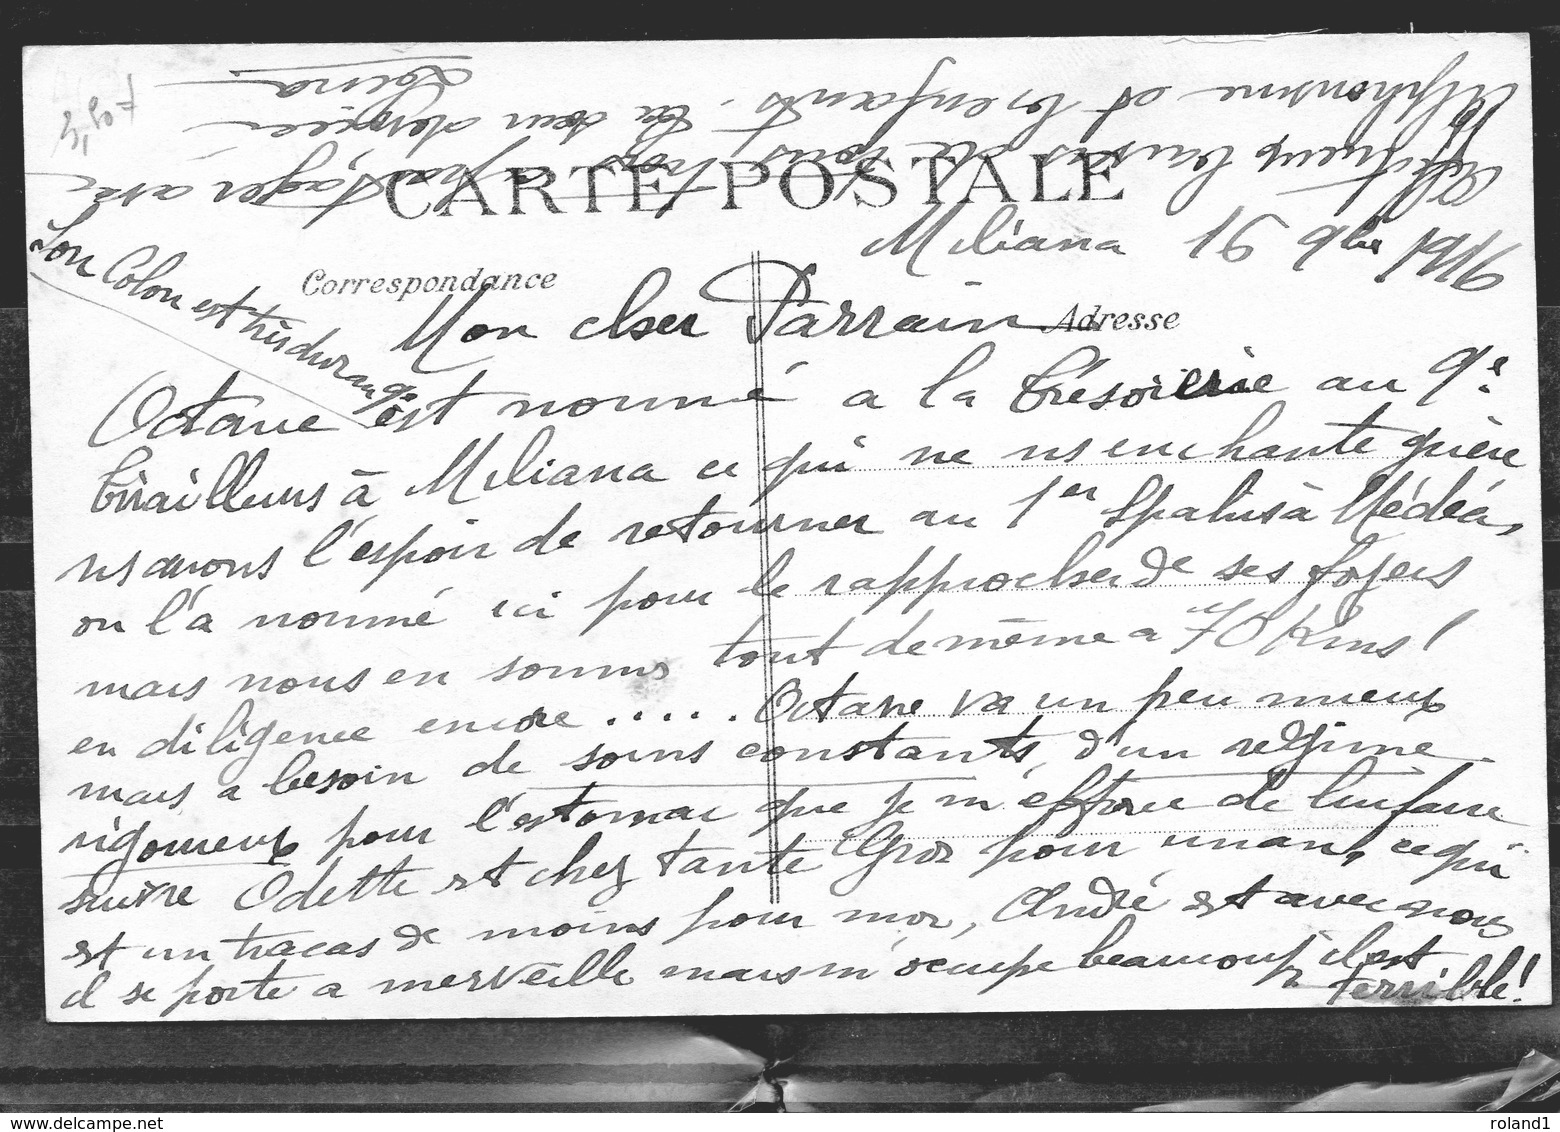 CARTE POSTALE
Miliana 16 9bre 1916
Correspondance
Adresse
Mon cher Parrain
Octave est nommé a la trésorerie au 9e
tirailleurs à Miliana ce qui ne ns enchante guère
ns avons l'espoir de retourner au 1er Spahis à Médéa,
on l'a nommé ici pour le rapprocher de ses foyers
mais nous en sommes tout de même a 70 kms !
en diligence encore ..... Octave va un peu mieux
mais a besoin de soins constants, d'un régime
rigoureux pour l'estomac que je m'efforce de lui faire
suivre Odette est chez tante Gros pour un an, ce qui
est un tracas de moins pour moi, André est avec nous
il se porte a merveille mais m'occupe beaucoup, il est
terrible !
Son Colon est très dur au 9e
Affectueux baisers de tous trois à partager avec
Alphonsine et les enfants. Ta sœur